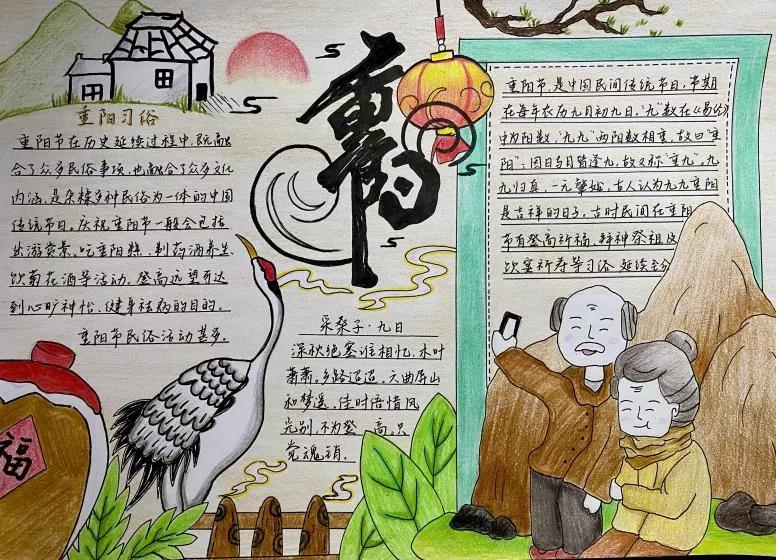 重阳
重阳习俗
重阳节在历史延续过程中，既融
合了众多民俗事项，也融合了众多文化
内涵，是杂糅多种民俗为一体的中国
传统节日。庆祝重阳节一般会包括
出游赏景、吃重阳糕、制药酒养生、
饮菊花酒等活动，登高远望可达
到心旷神怡、健身祛病的目的。
重阳节民俗活动甚多。
采桑子·九日
深秋绝塞谁相忆，木叶
萧萧。乡路迢迢。六曲屏山
和梦遥。佳时倍惜风
光别，不为登高。只
觉魂销。
重阳节，是中国民间传统节日，节期
在每年农历九月初九日。"九"数在《易经》
中为阳数，"九九"两阳数相重，故曰"重
阳"；因日与月皆逢九，故又称"重九"。九
九归真，一元肇始，古人认为九九重阳
是吉祥的日子。古时民间在重阳
节有登高祈福、拜神祭祖及
饮宴祈寿等习俗，延续至今
福